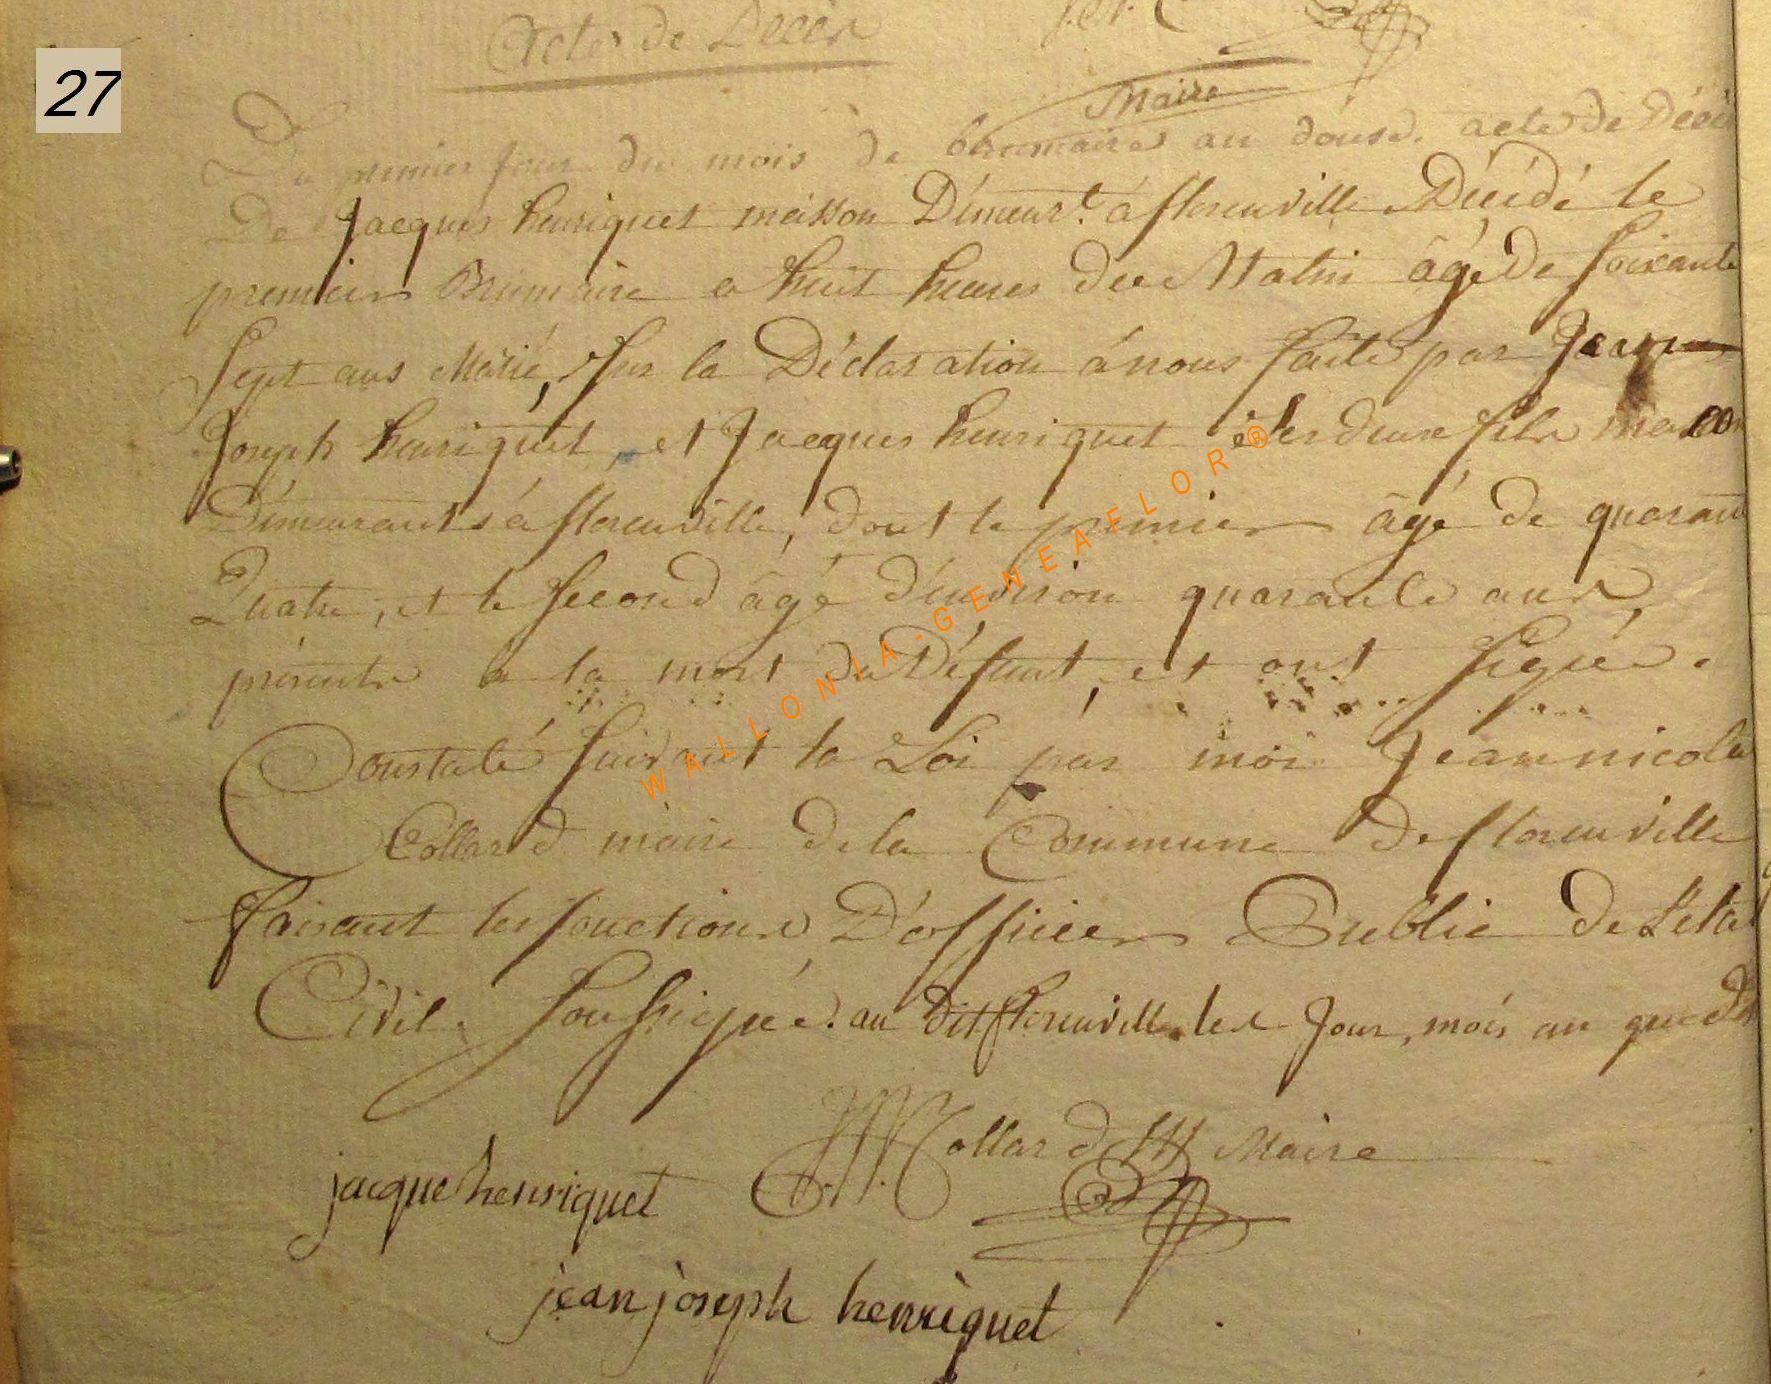 27
Acte de Décès
Maire
Du premier jour du mois de brumaire an douse. acte de Décè
De Jacques henriquet maisson Démeurt. á florenville Décédé le
premier Brumaire a huit heures du Matin âgé De soixante
Sept ans Marié, sur la Déclaration á nous faite par Jean
Joseph henriquet, et Jacques henriquet ses deux fils
Démeurants á florenville, dont le premier âgé de quaran
Quatre, et le second âgé d'environ quarante ans,
présents à la mort du Défunt, et ont signé.
Constaté suivant la Loi par moi Jean nicola
Collard maire de la Commune de florenville
faisant les fonctions D'officier Public De L'éta
Civil soussigné. au dit florenville les Jour, mois an que dt
Collard Maire
jacque henriquet
jean joseph henriquet
WALLONIA-GENEAFLOR®